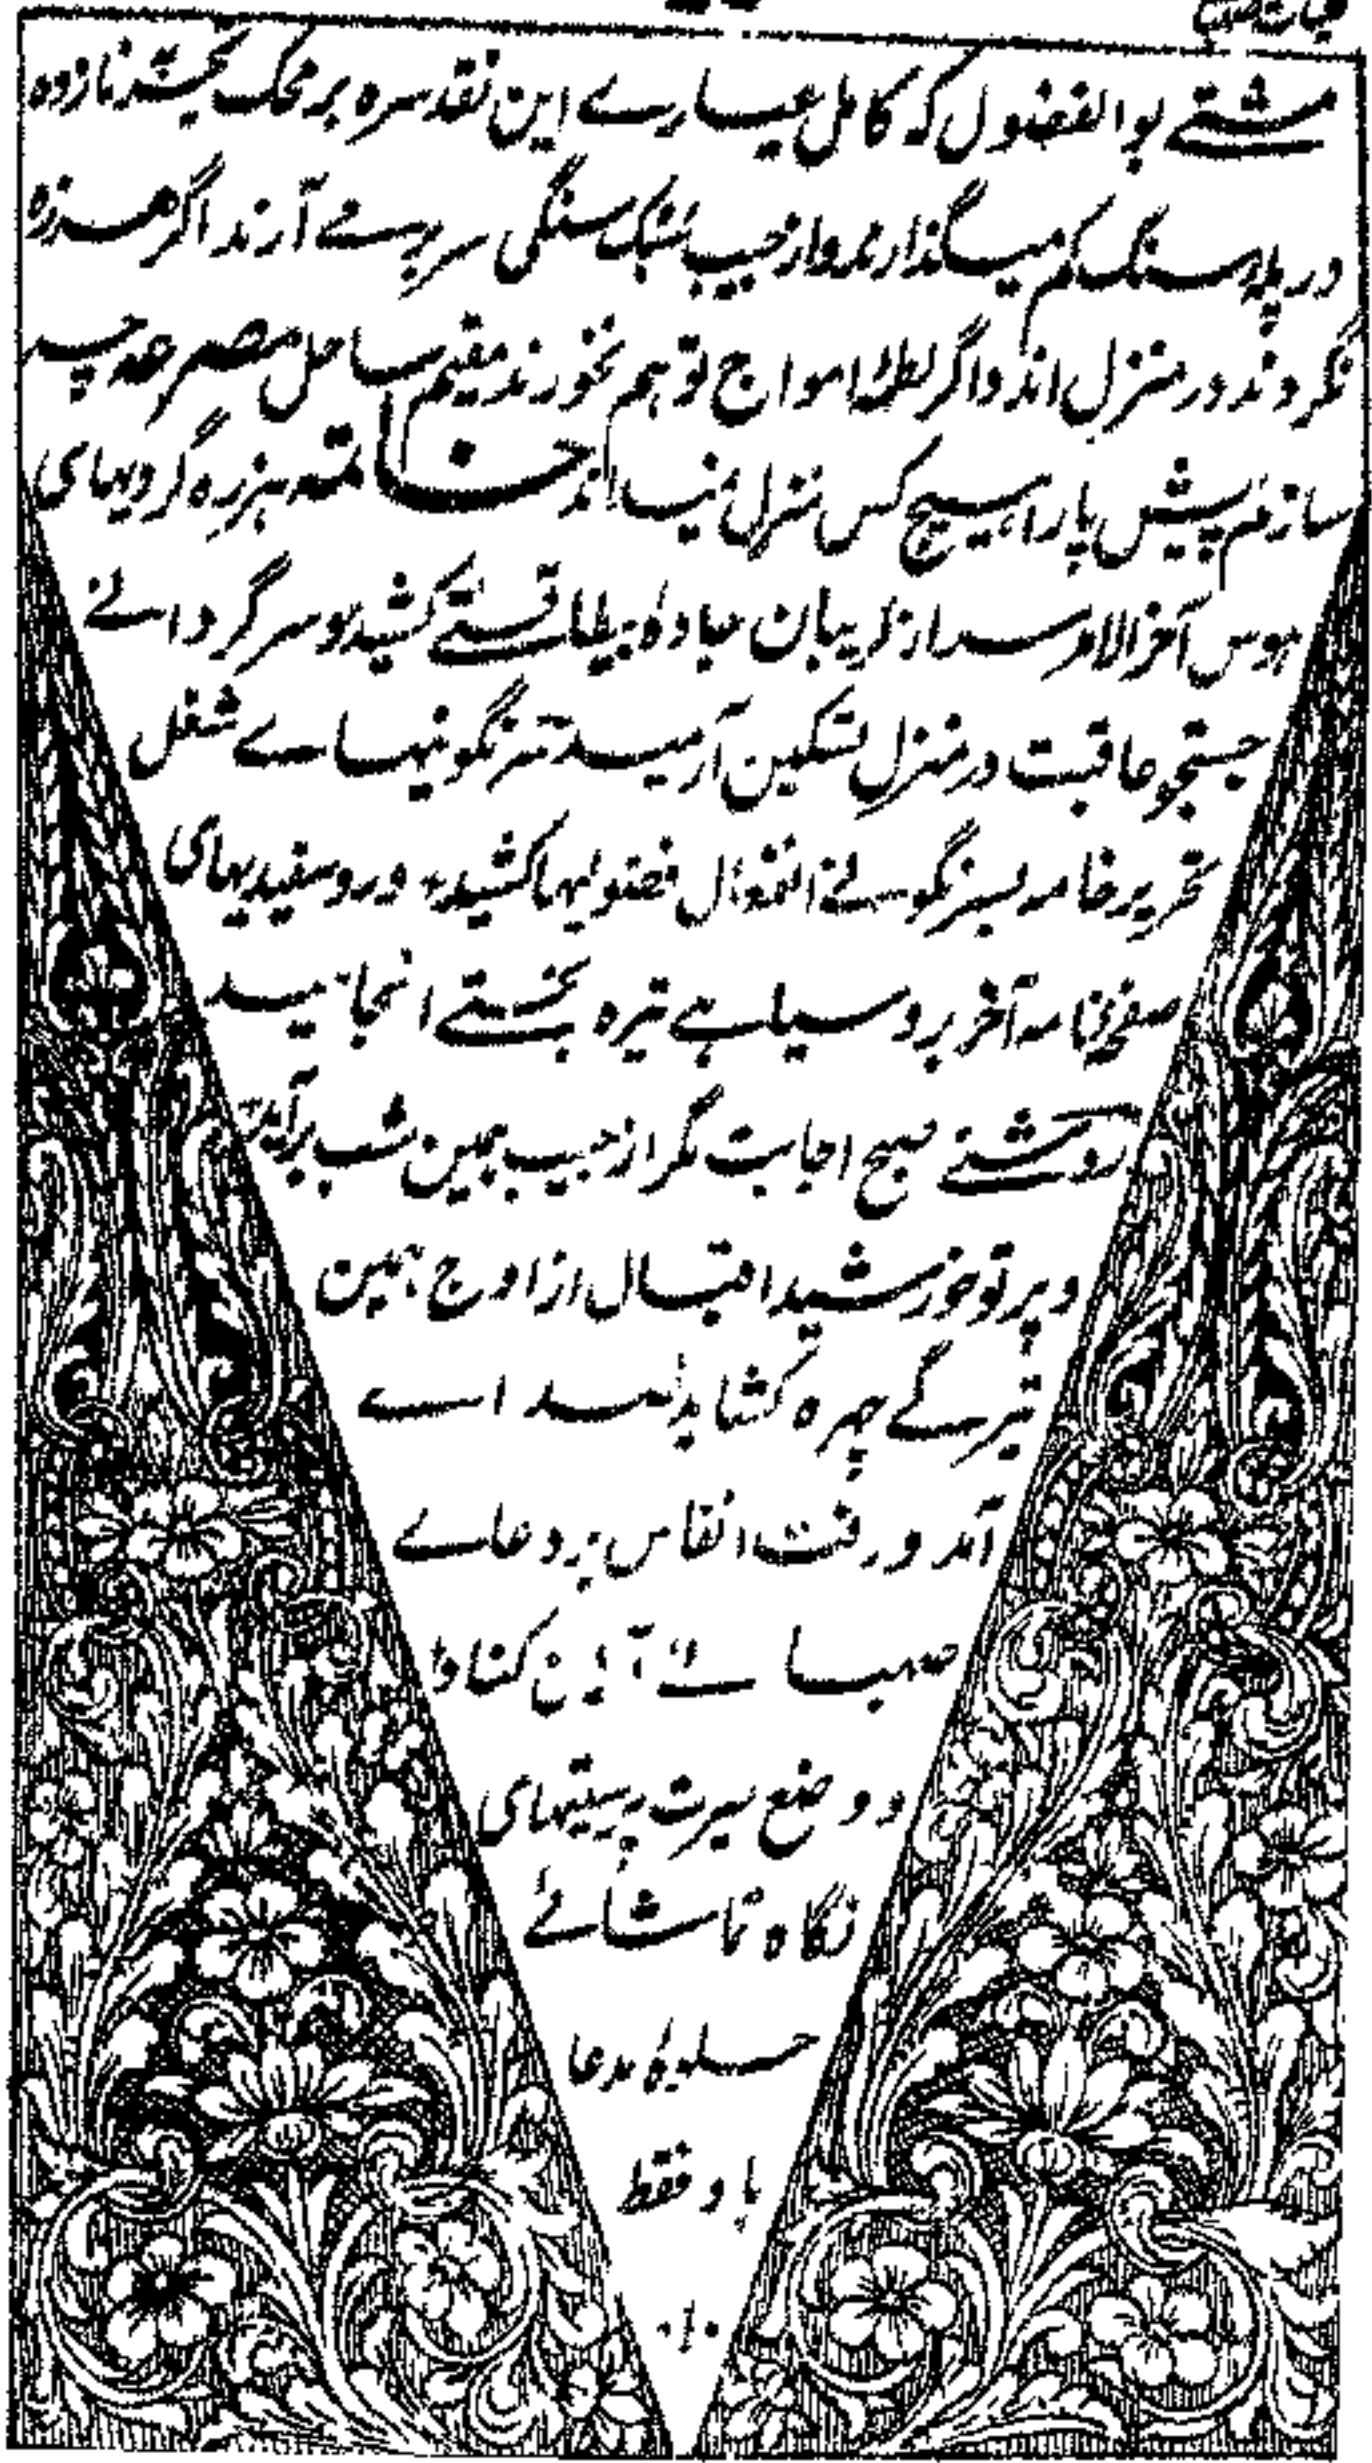 مشتے بوالفضول که کامل عیارے این نقد سره بر محک نازده
در پله سنگ کم میگذارند و از جیب سبک سنگی سر برمے آرند اگر هرزه
نگردند در منزل اند و اگر لطمۂ امواج توهم نخورند مقیم ساحل مصرعه چه
سازم پیش پا را هیچ کس منزل نمیداند خاتمه هرزه گردیهای
هوس آخرالامر سر از گریبان جادۂ بیطاقتے کشید و سرگردانے
جستجو عاقبت در منزل تسکین آرمید سرنگونیهاے شغل
تحریر خامه بسرنگونے انفعال فضولیها کشید و روسفیدیهای
صفحۂ نامه آخر بروسیاهے تیره بختے انجامید
روشنے صبح اجابت مگر از جیب همین شب برآید
و پرتو خورشید اقبال از اوج همین
تیرگے چهره کشاید
آمد و رفت انفاس بر دعاے
صهبائے آمین کناد
و وضع سیرت پرستیهای
نگاه تماشائے
جلوۂ مدعا
باد فقط